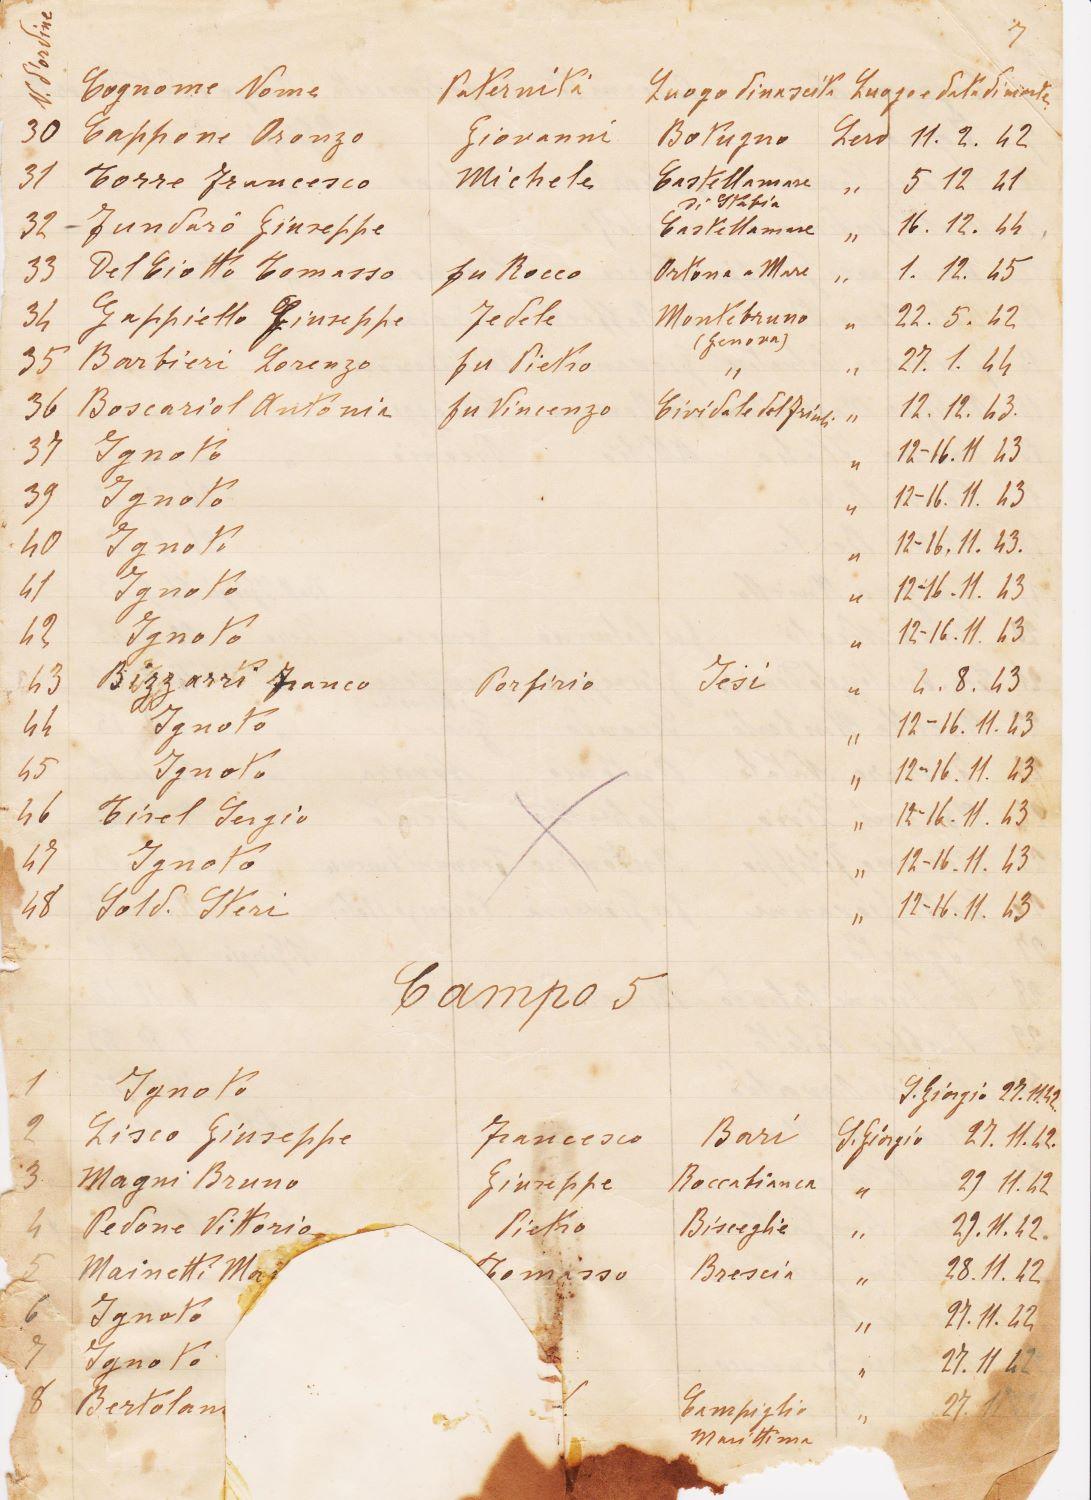 7
N. d'ordine Cognome Nome Paternità Luogo di nascita Luogo e data di morte
30 Cappone Oronzo Giovanni Botugno Lero 11. 2. 42
31 Torre Francesco Michele Castellamare di Stabia " 5 12 41
32 - Fundarò Giuseppe Castellamare " 16. 12. 44
33 Del Ciotto Tomasso fu Rocco Ortona a Mare " 1. 12. 45
34 Gappiello Giuseppe Fedele Montebruno (Genova) " 22. 5. 42
35 Barbieri Lorenzo fu Pietro " " 27. 1. 44
36 Boscariol Antonio fu Vincenzo Cividale del Friuli " 12. 12. 43.
37 Ignoto " 12-16. 11 43
39 Ignoto " 12-16. 11. 43
40 Ignoto " 12-16. 11. 43.
41 Ignoto " 12-16. 11. 43
42 Ignoto " 12-16. 11. 43
43 Bizzarri Franco Porfirio Jesi " 4. 8. 43
44 Ignoto " 12-16. 11. 43
45 Ignoto " 12-16. 11. 43
46 Tirel Sergio " 12-16. 11. 43
47 Ignoto " 12-16. 11. 43
48 Sold. Steri " 12-16. 11. 43
Campo 5
1 Ignoto S. Giorgio 27. 11. 42.
2 Lisco Giuseppe Francesco Bari S. Giorgio 27. 11. 42.
3 Magni Bruno Giuseppe Roccabianca " 29 11. 42
4 Pedone Vittorio Pietro Bisceglie " 29. 11. 42.
5 Mainetti Ma Tomasso Brescia " 28. 11. 42
6 Ignoto " 27. 11. 42
7 Ignoto " 27. 11 42
8 Bertolam Campiglio Marittima " 27. 11